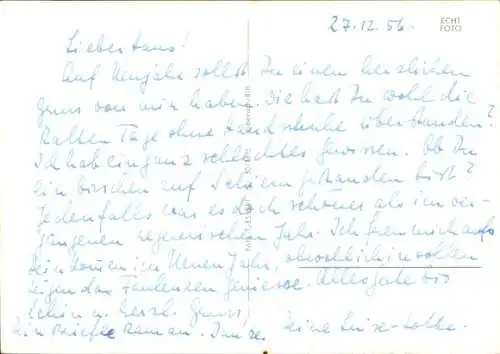 27.12.56.
ECHT
FOTO
Lieber Hans!
Auf Neujahr sollst Du einen herzlichen
Gruss von mir haben. Wie hast Du wohl die
kalten Tage ohne Handschuhe überstanden?
Ich hab ein ganz schlechtes Gewissen. Ob Du
ein bisschen auf Schiern gestanden bist?
Jedenfalls war es doch schöner als im ver-
gangenen regnerischen Jahr. Ich freu mich aufs
Dein Kommen im Neuen Jahr, obwohl ich in vollen
Zügen das Faulenzen geniesse. Alles Gute bis
dahin u. herzl. Gruss,
Dein Briefle kam an. Danke. Deine Luise-Lotte.